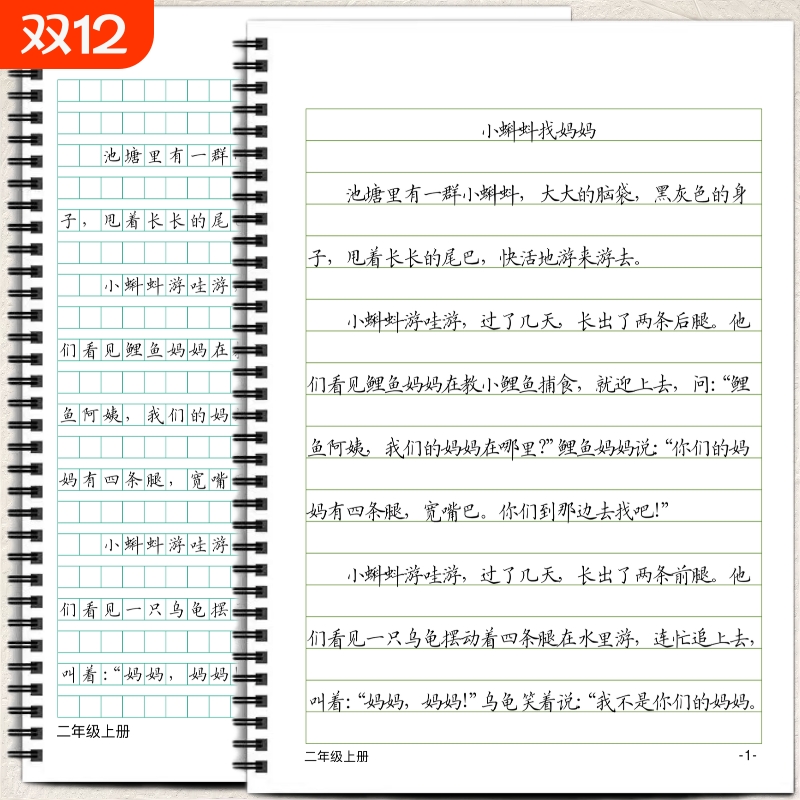 双12
池塘里有一群
子，甩着长长的尾
小蝌蚪游哇游
们看见鲤鱼妈妈在
鱼阿姨，我们的妈
妈有四条腿，宽嘴
小蝌蚪游哇游
们看见一只乌龟摆
叫着：“妈妈，妈妈
二年级上册
小蝌蚪找妈妈
池塘里有一群小蝌蚪，大大的脑袋，黑灰色的身
子，甩着长长的尾巴，快活地游来游去。
小蝌蚪游哇游，过了几天，长出了两条后腿。他
们看见鲤鱼妈妈在教小鲤鱼捕食，就迎上去，问：“鲤
鱼阿姨，我们的妈妈在哪里？”鲤鱼妈妈说：“你们的妈
妈有四条腿，宽嘴巴。你们到那边去找吧！”
小蝌蚪游哇游，过了几天，长出了两条前腿。他
们看见一只乌龟摆动着四条腿在水里游，连忙追上去，
叫着：“妈妈，妈妈！”乌龟笑着说：“我不是你们的妈妈。
二年级上册
-1-